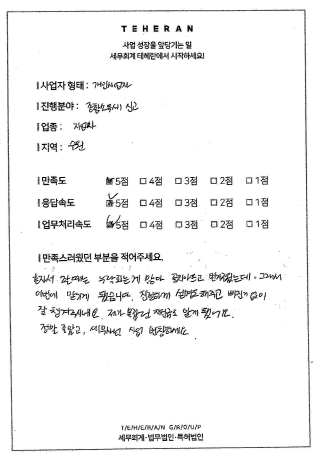 TEHERAN
사업 성장을 앞당기는 일
세무회계 테헤란에서 시작하세요!
사업자 형태 : 개인사업자
진행분야 : 종합소득세 신고
업종 :
지역 : 수원
만족도 5점 4점 3점 2점 1점
응답속도 5점 4점 3점 2점 1점
업무처리속도 5점 4점 3점 2점 1점
만족스러웠던 부분을 적어주세요.
혼자서 할때는
이번에 맡기게 됐습니다. 친절하게 설명도 해주고 빠진거없이
잘 챙겨주시네요. 제가 몰랐던 알게 됐어요.
정말 사업 번창하세요.
T/E/H/E/R/A/N G/R/O/U/P
세무회계·법무법인·특허법인